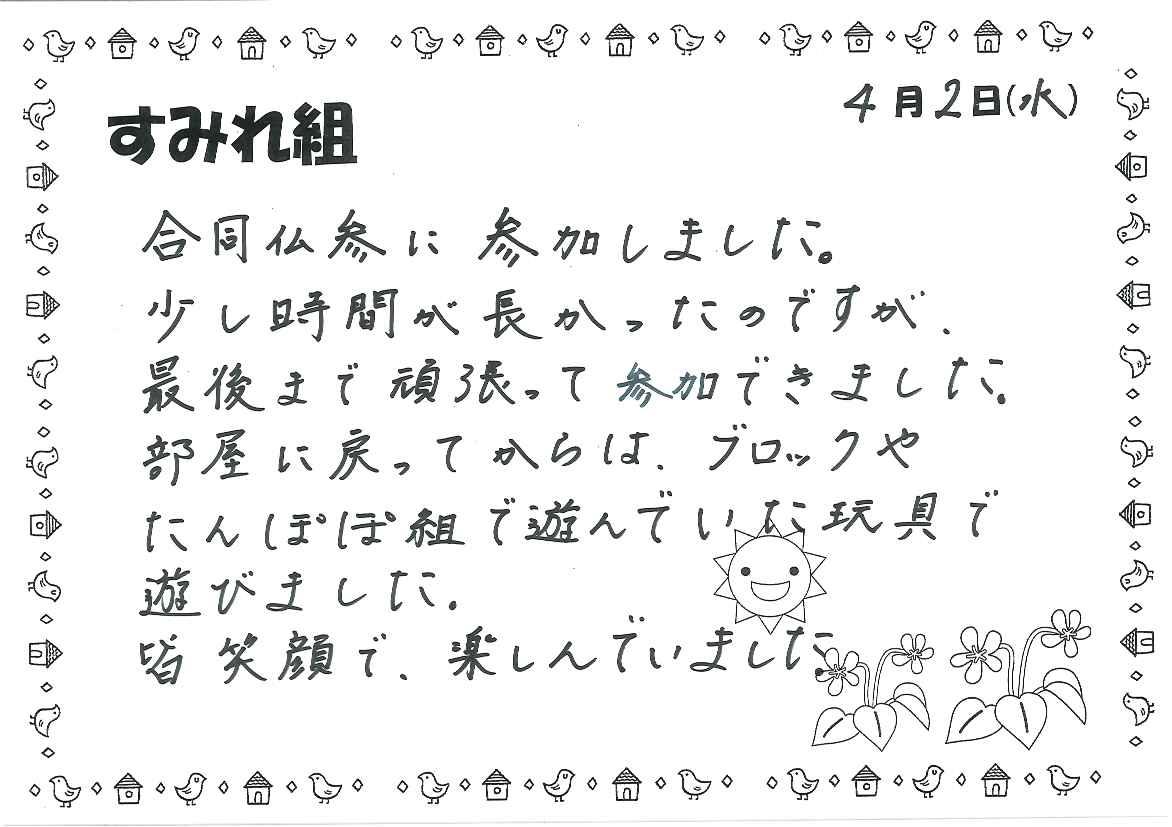 4月2日(水)
すみれ組
合同仏参に参加しました。
少し時間が長かったのですが、
最後まで頑張って参加できました。
部屋に戻ってからは、ブロックや
たんぽぽ組で遊んでいた玩具で
遊びました。
皆笑顔で、楽しんでいました。